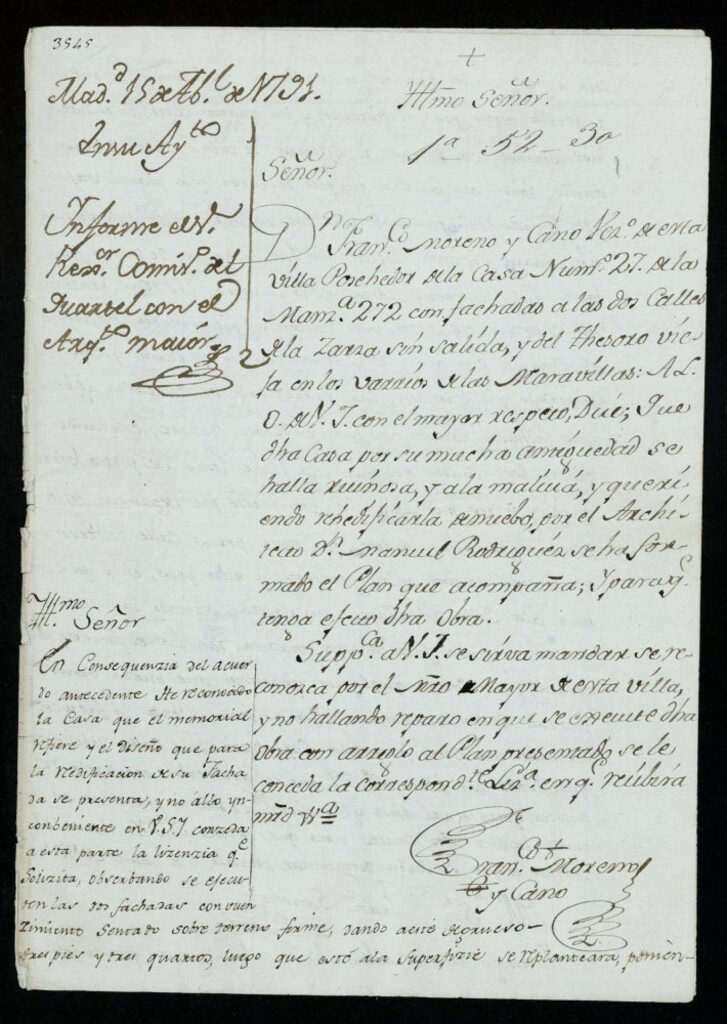 3545
+
Mad.d 15 de Ab.l de 1791.
En su Ay.to
Informe el S.r
Rex.or Comis.o del
Quartel con el
Arq.to maior
Yltmo Señor.
1a 52 - 30
Señor.
Dn Fran.co Moreno y Cano Vez.o de esta
villa Pohehedor de la Casa Num.o 27. de la
Manz.a 272 con fachadas a las dos Calles
de la Zarza sin salida, y del Thesoro vie-
ja en los varrios de las Maravillas: A L.
O. de V. I. con el mayor respeto, Dize; Que
dha Casa por su mucha antiguedad se
halla ruinosa, y a la malicia, y queri-
endo rehedificarla de nuebo, por el Archi-
tecto Dn Manuel Rodriguez se ha for-
mado el Plan que acompaña; Y para q.e
tenga efecto dha Obra.
Supp.ca a V. I. se sirva mandar se re-
conozca por el Mro Mayor de esta villa,
y no hallando reparo en que se execute dha
Obra con arreglo al Plan presentado se le
conceda la correspond.te Liz.a en q.e recibira
mrd V.a
Fran.co Moreno
y Cano
Yltmo
Señor
En Consequenzia del acuer-
do antecedente He reconocido
la Casa que el memorial
refiere y el diseño que para
la redificacion de su Facha
da se presenta, y no allo yn-
conbeniente en V.S.I conzeda
a esta parte la lizenzia q.e
Solizita, obserbando se ejecu-
ten las dos fachadas con buen
Zimiento Sentado sobre terreno firme, dando a este de grueso
tres pies y tres quartos, luego que esté a la Superfizie se replanteara, ponien-